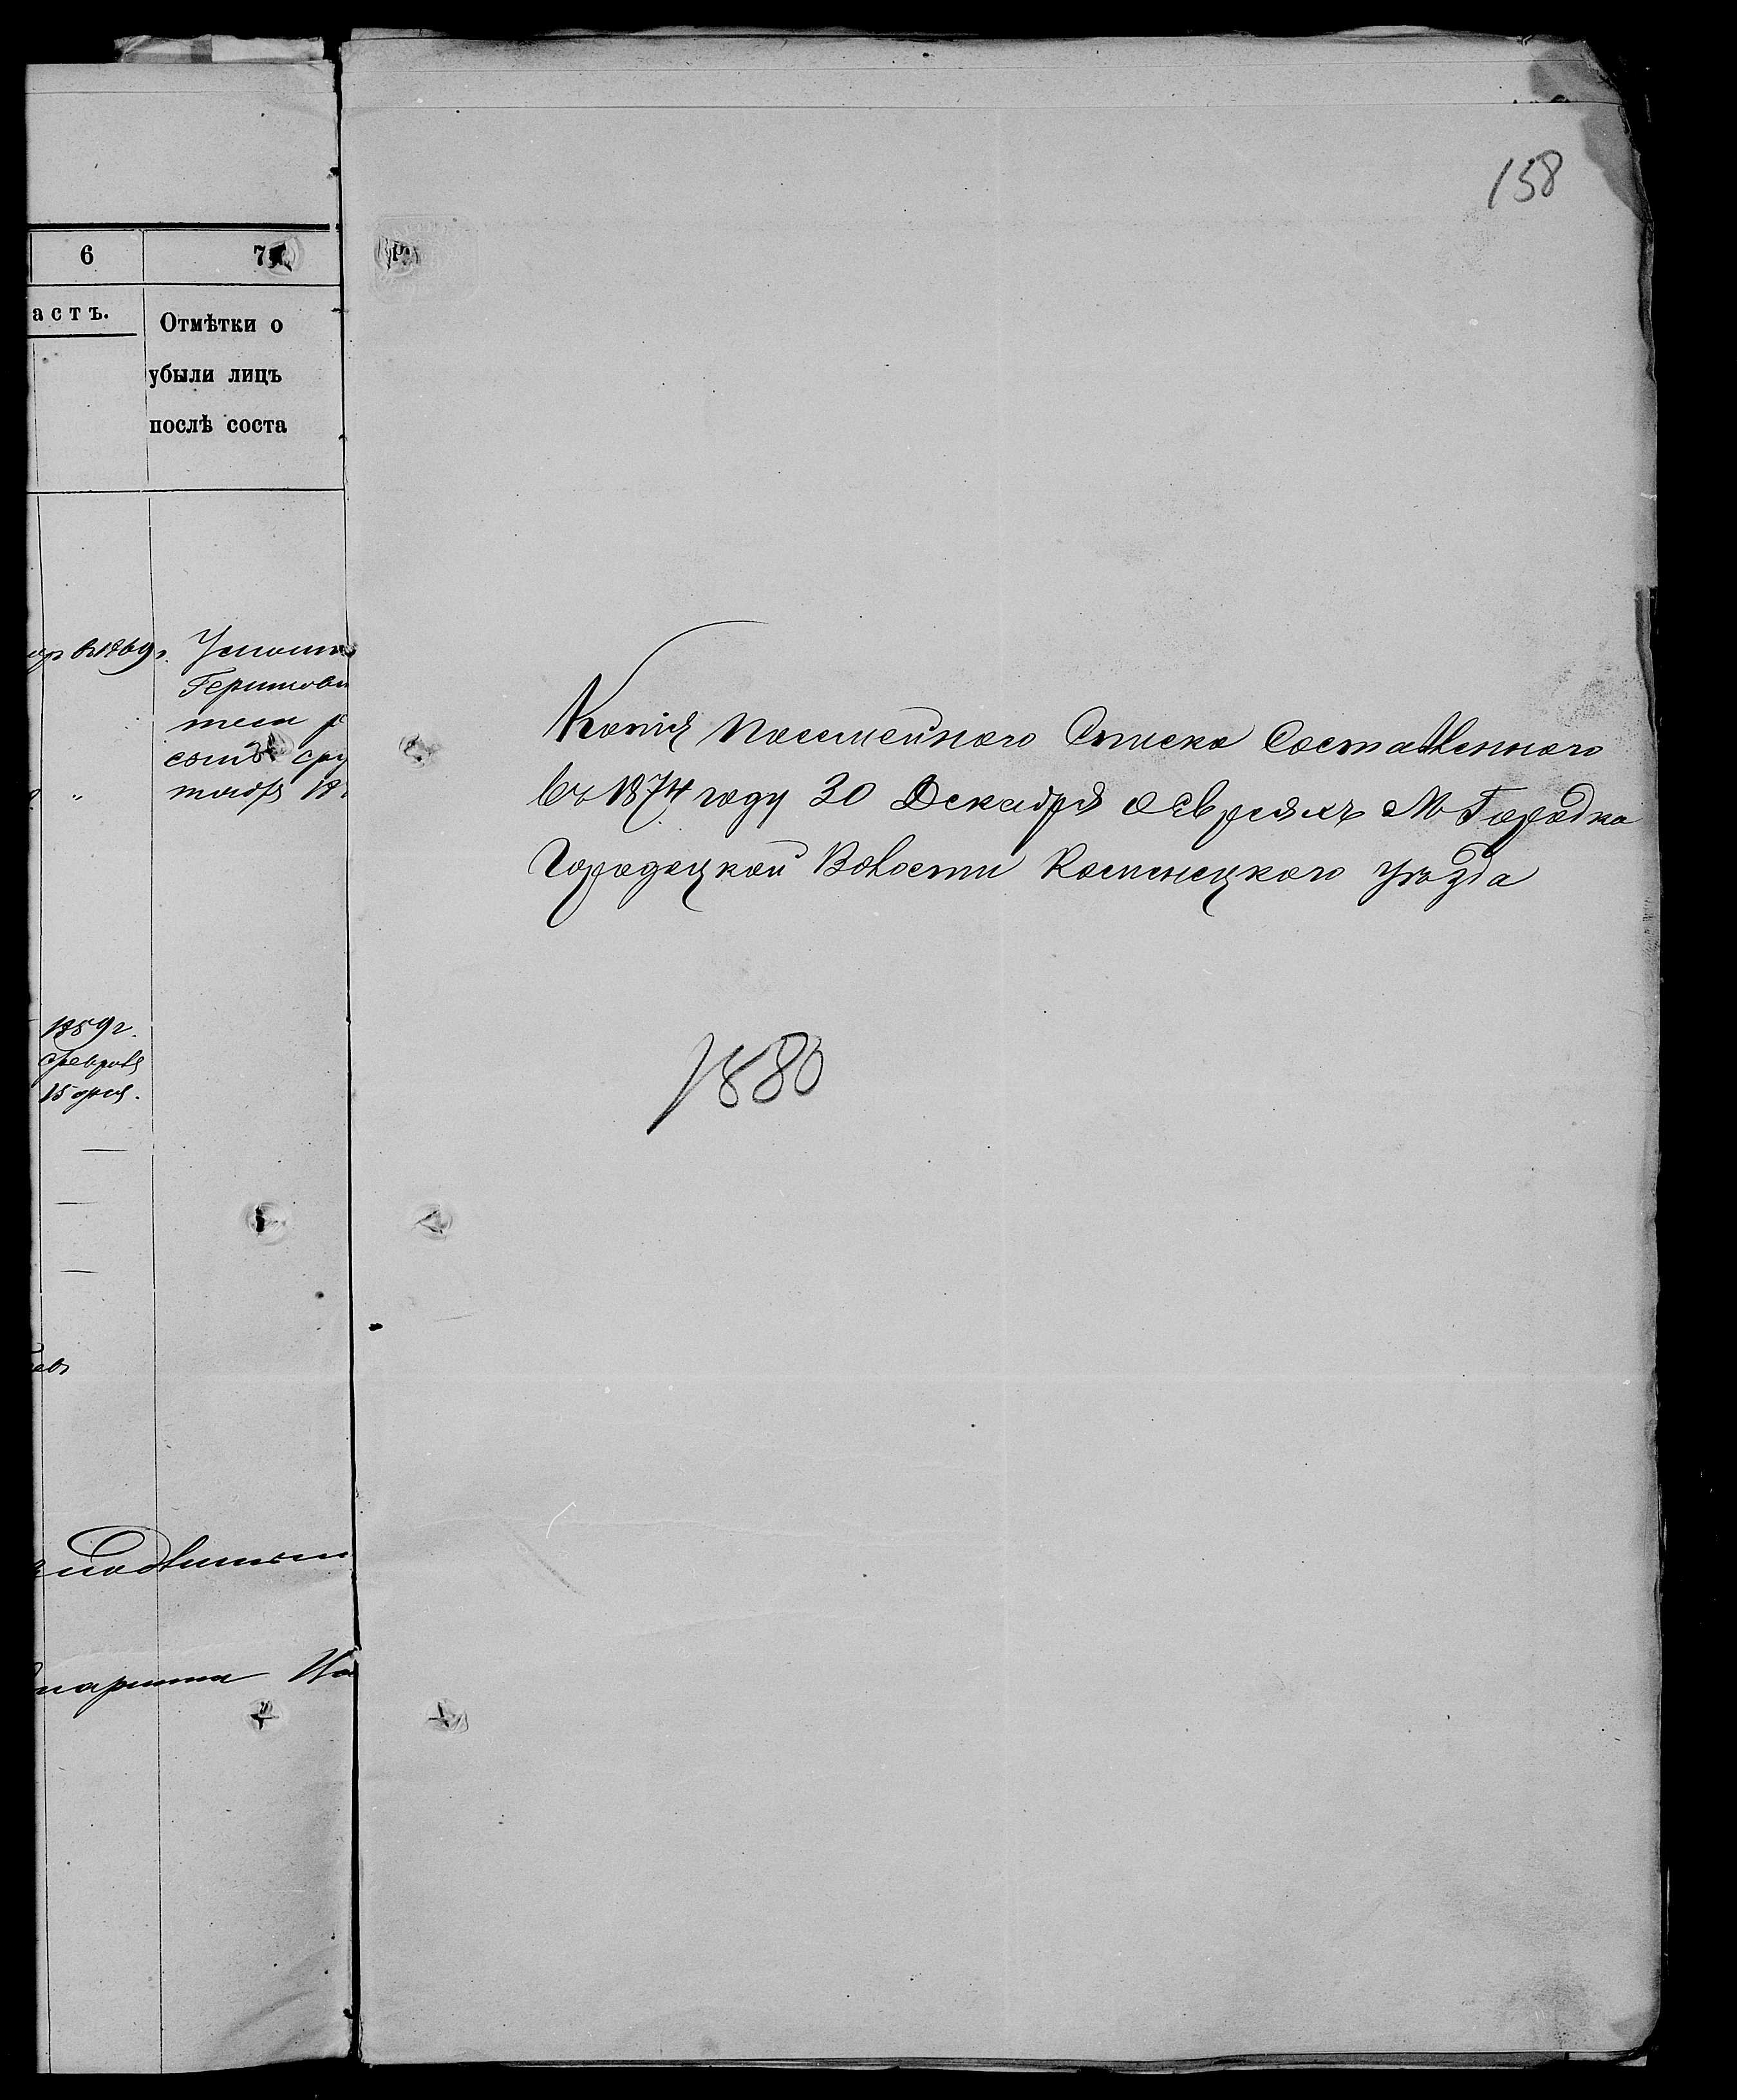 158
6 7
астъ.
Отмѣтки о
убыли лицъ
послѣ соста
въ 1869 г.
1859 г.
февраля
15 дня.
Копія посемейного Списка Составленного
въ 1874 году 30 Декабря о Евреяхъ М Городка
Городецкой Волости Каменецкого уѣзда
1880